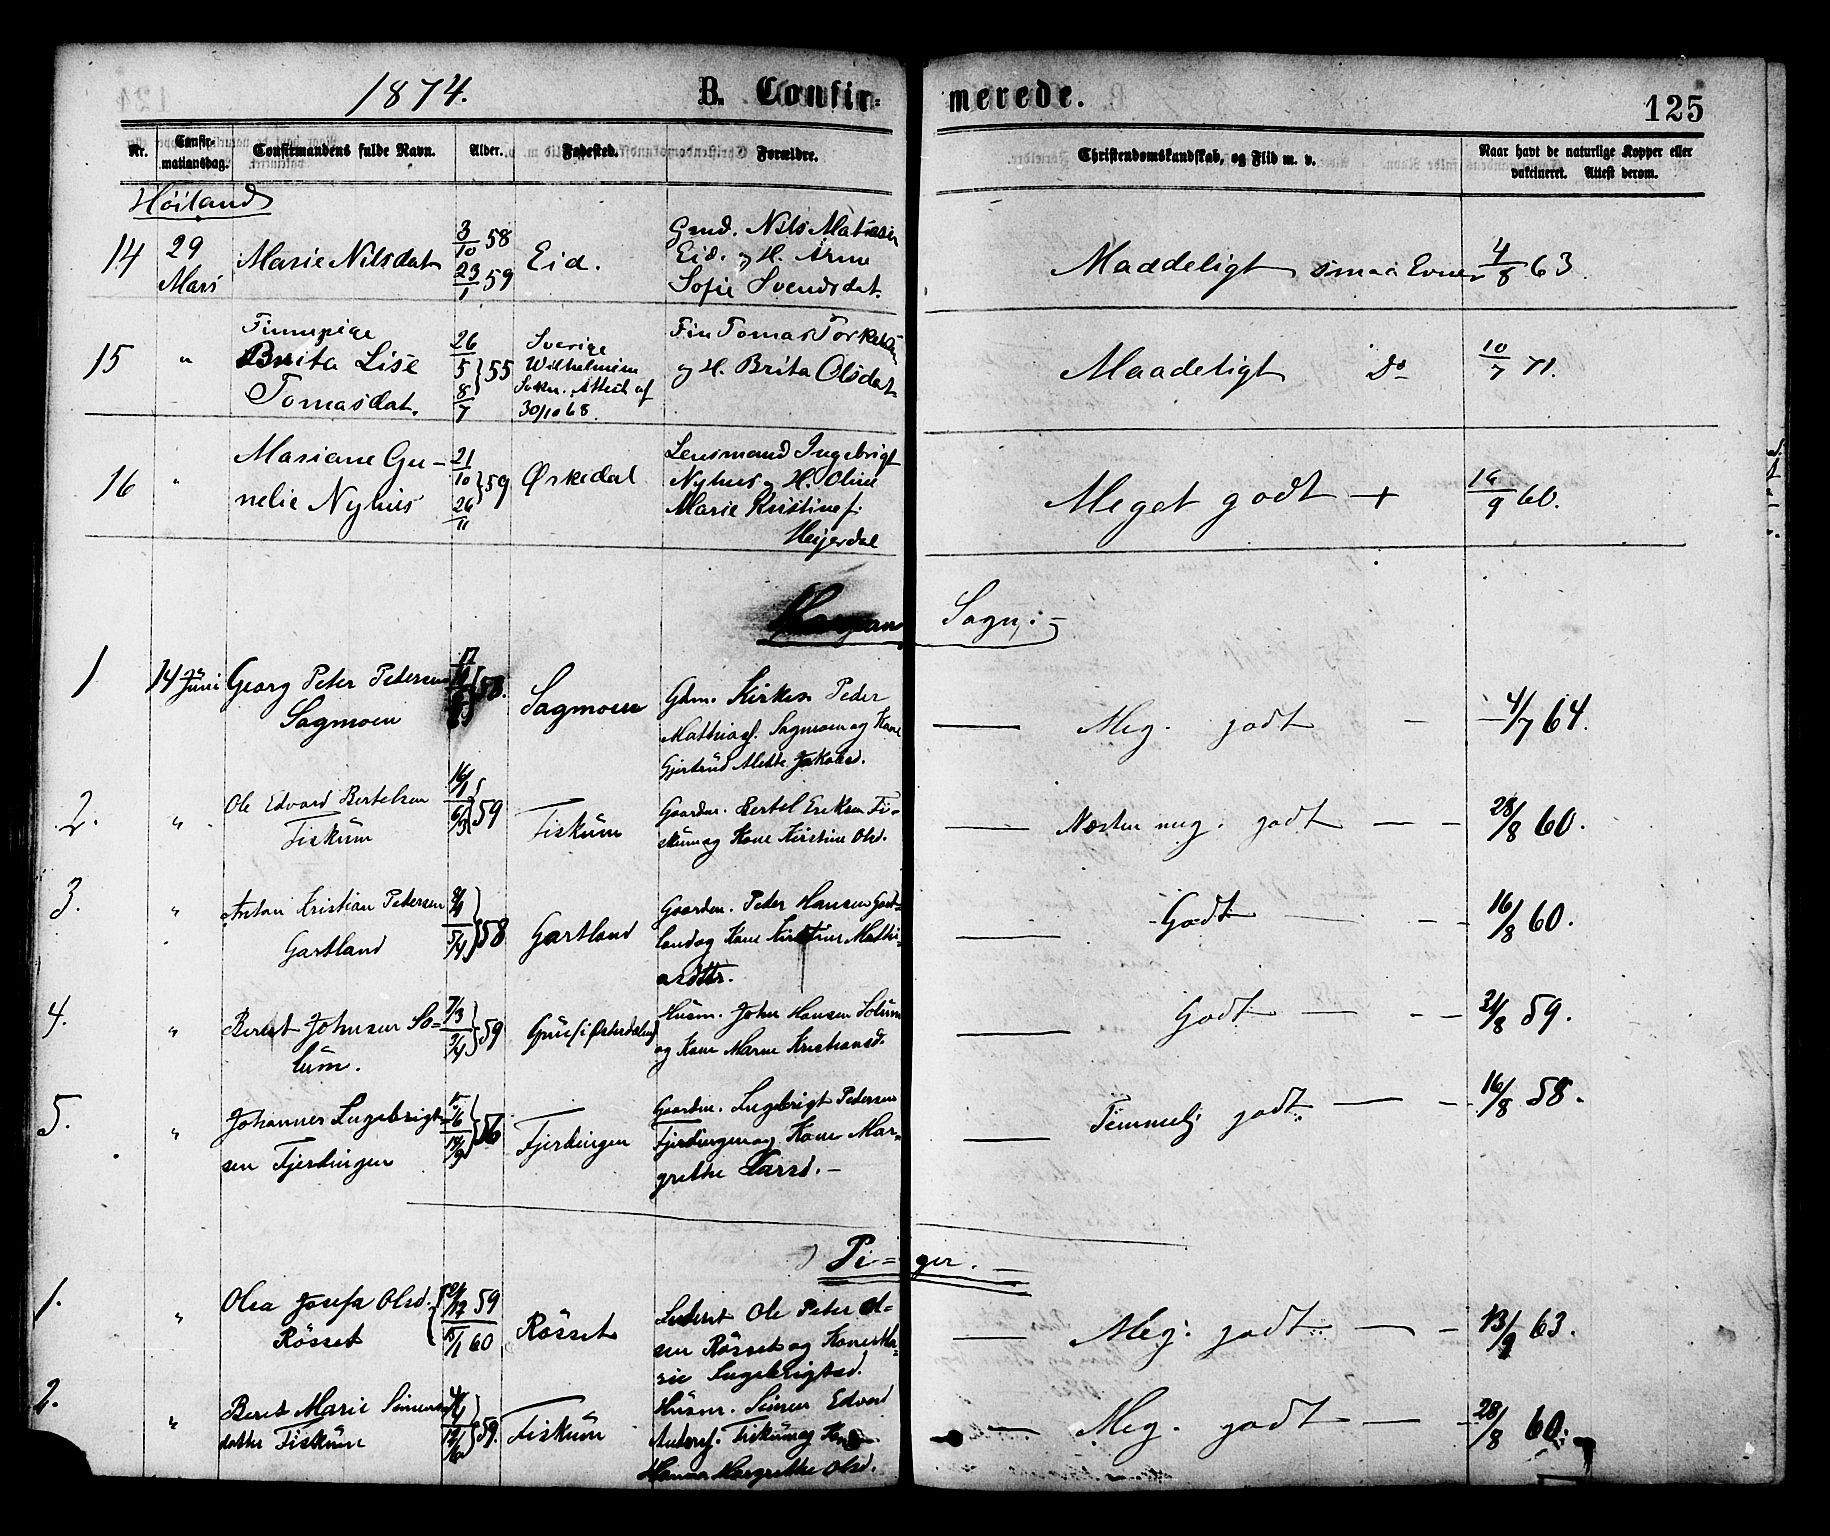 1874. B. Confir- merede. 125
Nr. Confirmationsdag. Confirmandens fulde Navn. Alder. Fødested. Forældre. Christendomskundskab, og Flid m. v. Naar havt de naturlige Kopper eller vakcineret. Attest derom.
Höiland
14 29 Mars Marie Nilsdat 3/10 58 23/1 59 Eid. Gmd. Nils Matiasen
Eid. og H. Arne
Sofie Svendsdat.
Maadeligt smaa Evner 4/8 63
15 " Finnepige
Brita Lise
Tomasdat. 26/5 8/7 } 55 Sverige
Wilhelmina
Sokn. Attest af
30/10 68. Fin Tomas Torkelsen
og H. Brita Olsdat
Maadeligt Do 10/7 71.
16 " Mariane Gu-
nelie Nyhus 21/10 26/11 } 59 Ørkedal Lensmand Ingebrigt
Nyhus og H. Oline
Marie Kristine f.
Heijerdal
Meget godt + 16/9 60.
Sogn:
1 14de Juni Georg Peter Pedersen
Sagmoen 58. Sagmoen Gdm. Kirkes. Peder
Mathias. Sagmoen og Kone
Gjertrud Alette Jakobsd.
— Meg. godt — 4/7 64.
2. " Ole Edvard Bertelsen
Fiskum 16/1 6/3 } 59 Fiskum Gaardm. Bertel Eriksen Fi-
skum og Kone Kirstine Olsd.
— Næsten meg. godt — 28/8 60.
3. " Anton Kristian Petersen
Gartland 5/4 } 58 Gartland Gaardm. Peder Hansen Gart-
land og Kone Kirstine Mathi-
asdttr.
— Godt — 16/8 60.
4. " Berest Johnsen So-
lum. 7/3 3/4 } 59 Grue i Østerdalen Husm. John Hansen Solum
og Kone Maren Kristiansd.
— Godt — 21/8 59.
5. " Johannes Ingebrigt-
sen Fjerdingen 15/6 14/9 } 56 Fjerdingen Gaardm. Ingebrigt Pedersen
Fjerdingen og Kone Mar-
grethe Larsd. —
— Temmelig godt — 16/8 58.
Pi- ger. —
1. " Olea Josefa Olsd.
Rösset 12 59 15/1 60 Rösset Inderst Ole Peter Ol-
sen Rösset og Kone Ma-
rie Ingebrigtsd.
— Meg. godt — 13/9 63.
2. " Beret Marie Simens
datter Fiskum 59. Fiskum Husm. Simen Edvard
Anders. Fiskum og Kone
Hanna Margrethe Olsd.
— Meg. godt — 28/8 60.